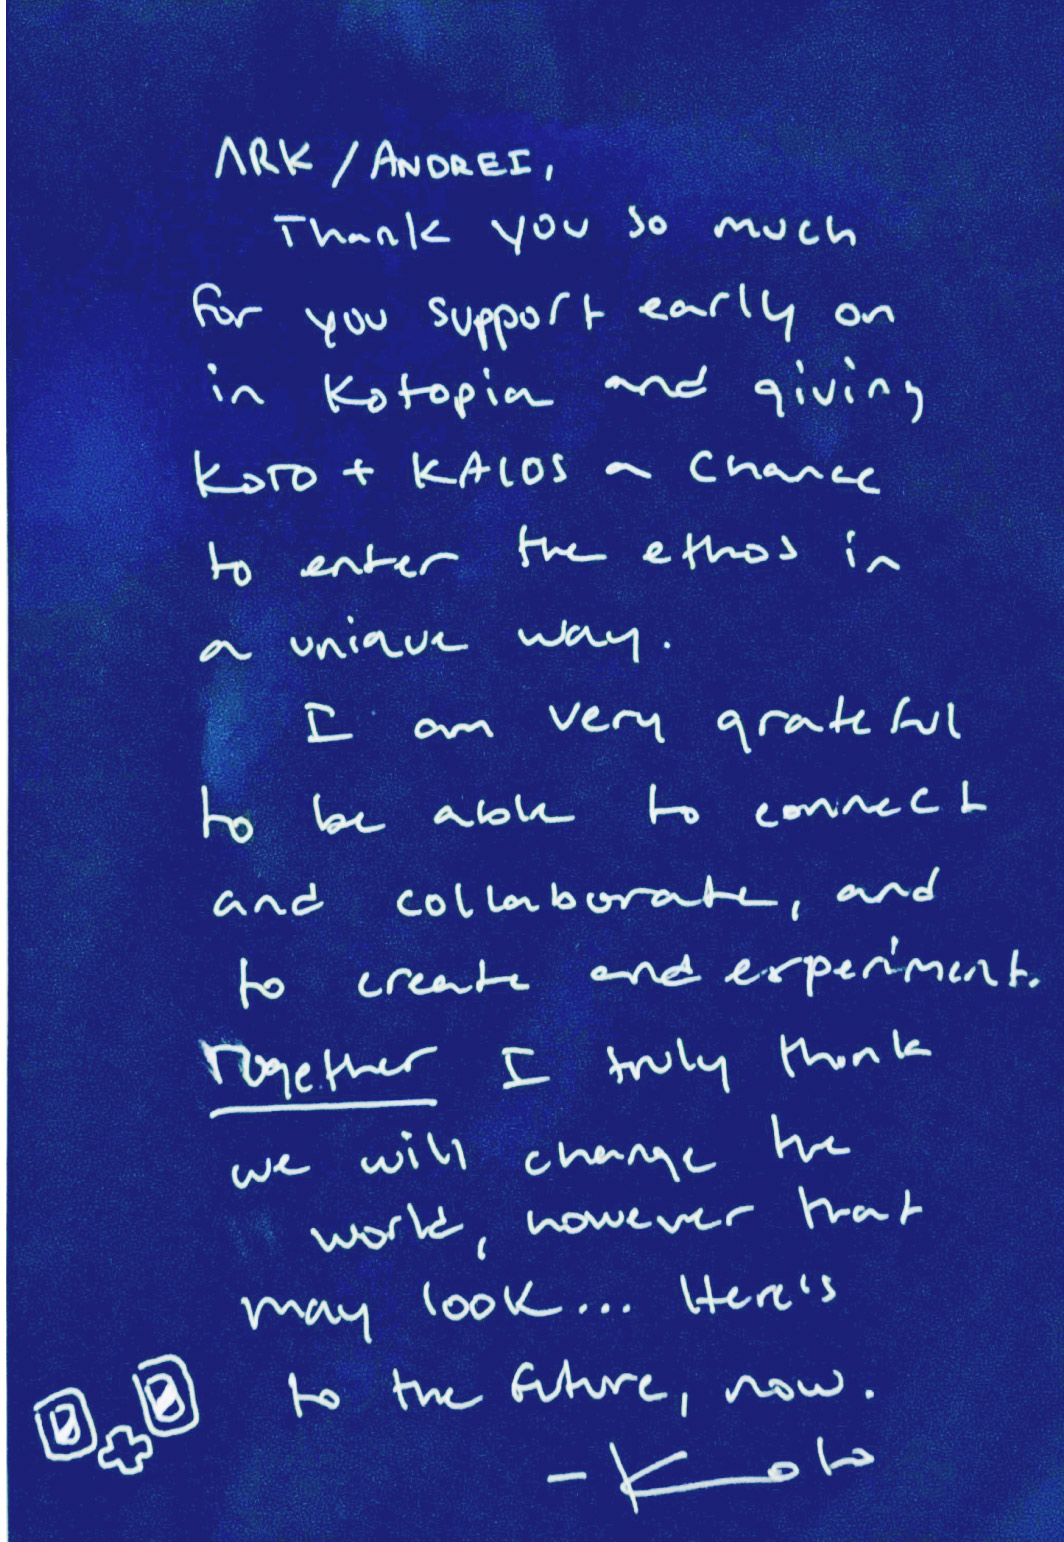 ARK / ANDREI,
Thank you so much
for you support early on
in Kotopia and giving
KOTO + KALOS a chance
to enter the ethos in
a unique way.
I am very grateful
to be able to connect
and collaborate, and
to create and experiment.
Together I truly think
we will change the
world, however that
may look... Here's
to the future, now.
- Koto